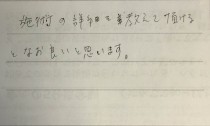 施術の詳細も教えて頂ける
となお良いと思います。